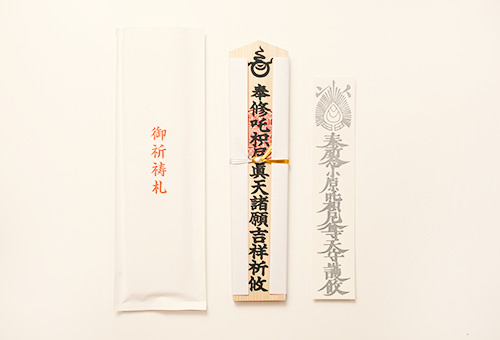 御祈祷札
奉修吒枳尼眞天諸願吉祥祈攸
奉 小原吒枳尼尊天守護攸